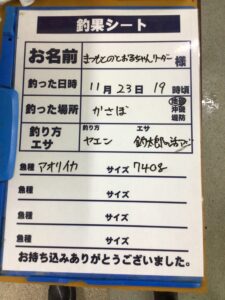 釣果シート
お名前 きっとのとおるちゃんリーダー 様
釣った日時 11月23日 19時頃
釣った場所 かさぼ 地磯 沖磯 堤防
釣り方 エサ 釣り方 ヤエン エサ 釣太郎の活アジ
魚種 アオリイカ サイズ 740g
魚種 サイズ
魚種 サイズ
魚種 サイズ
お持ち込みありがとうございました。